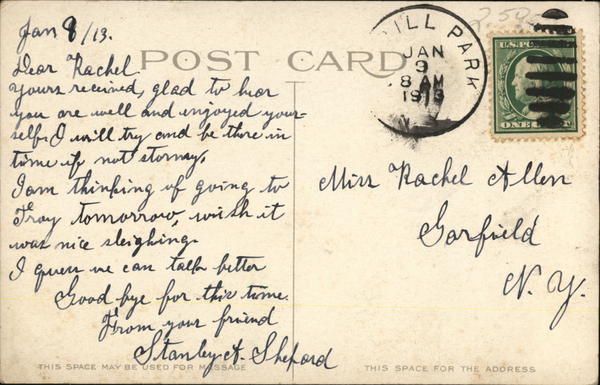 Jan 8/13.
2.50
POST CARD
Dear Rachel.
Yours received, glad to hear
you are well and enjoyed your-
self. I will try and be there in
time if not stormy.
I am thinking of going to
Troy tomorrow, wish it
was nice sleighing.
I guess we can talk better
Good bye for this time.
From your friend
Stanley A. Sheford
THIS SPACE MAY BE USED FOR MESSAGE
ILL PARK
JAN
9
8 AM
1913
U.S. POSTAGE
ONE CENT
Miss Rachel Allen
Garfield
N. Y.
THIS SPACE FOR THE ADDRESS